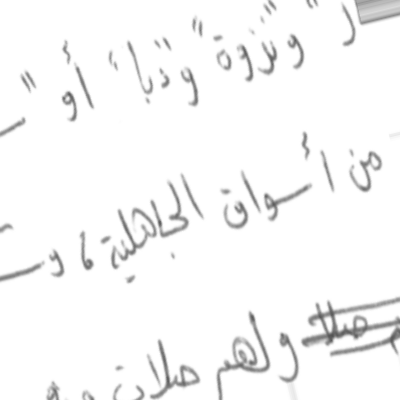 " ونزوة " و " دبا " أو "
من أسواق الجاهلية ، و
ولهم صلات